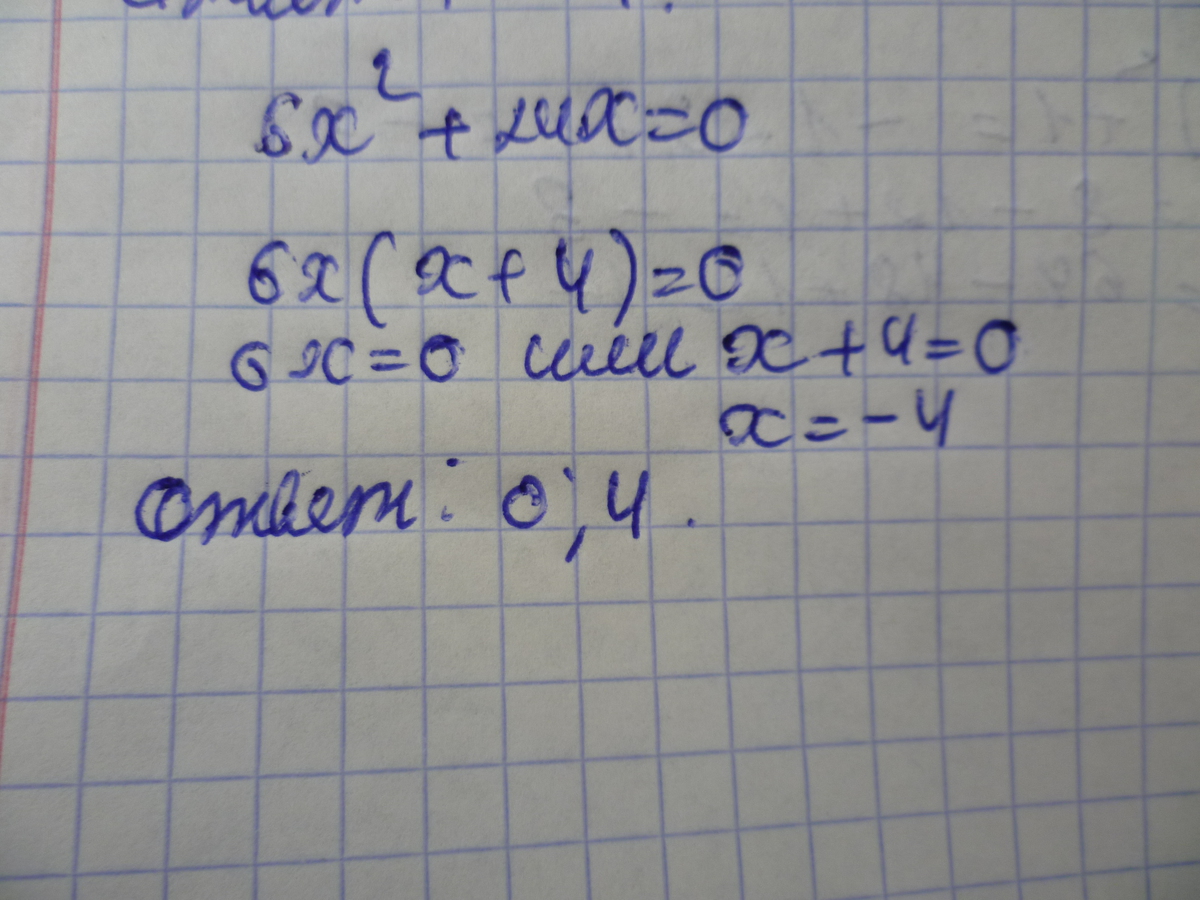 6x² + 24x = 0
6x(x + 4) = 0
6x = 0 или x + 4 = 0
x = - 4
Ответ: 0; 4.